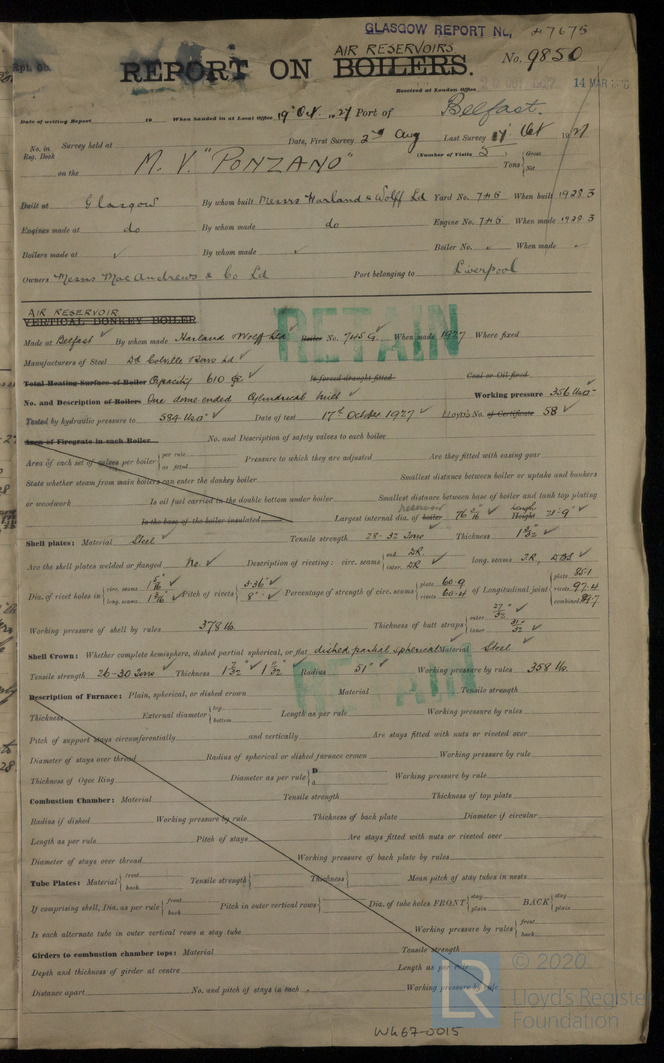 GLASGOW REPORT No. 47675
Rpt. 5b.
AIR RESERVOIRS
REPORT ON BOILERS.
No. 9850
Received at London Office
14 MAR
Date of writing Report 19 When handed in at Local Office 19th Oct. 1927 Port of Belfast.
No. in Reg. Book
Survey held at
Date, First Survey 2nd Aug Last Survey 17 Oct 1927
on the M. V. "PONZANO"
(Number of Visits 5
Tons { Gross
Net
Built at Glasgow By whom built Messrs Harland & Wolff Ld Yard No. 745 When built 1928 3
Engines made at do By whom made do Engine No. 745 When made 1928 3
Boilers made at By whom made Boiler No. When made
Owners Messrs MacAndrews & Co Ld Port belonging to Liverpool
AIR RESERVOIR
VERTICAL DONKEY BOILER
RETAIN
Made at Belfast By whom made Harland Wolff Ltd Boiler No. 745 G When made 1927 Where fixed
Manufacturers of Steel Dd Colville & Sons Ld
Total Heating Surface of Boiler Capacity 610 Is forced draught fitted Coal or Oil fired
No. and Description of Boilers One dome ended Cylindrical built Working pressure 356 lbs
Tested by hydraulic pressure to 584 lbs Date of test 17th October 1927 Lloyd's No. of Certificate 58
Area of Firegrate in each Boiler No. and Description of safety valves to each boiler
Area of each set of valves per boiler { per rule
as fitted
Pressure to which they are adjusted Are they fitted with easing gear
State whether steam from main boilers can enter the donkey boiler Smallest distance between boiler or uptake and bunkers
or woodwork Is oil fuel carried in the double bottom under boiler Smallest distance between base of boiler and tank top plating
Is the base of the boiler insulated Largest internal dia. of boiler reservoir Height Length
Shell plates: Material Steel Tensile strength 28-32 Tons Thickness
Are the shell plates welded or flanged No. Description of riveting: circ. seams { end DR
inter. DR
long. seams TR, DBS
Dia. of rivet holes in { circ. seams
long. seams
Pitch of rivets { 3.36"
8"
Percentage of strength of circ. seams { plate 60.9
rivets 60.4
of Longitudinal joint { plate 85.1
rivets 97.4
combined
Working pressure of shell by rules 378 lb. Thickness of butt straps { outer 27/32"
inner
Shell Crown: Whether complete hemisphere, dished partial spherical, or flat dished partial spherical Material Steel
Tensile strength 26-30 Tons Thickness Radius 51" Working pressure by rules 358 lbs.
RETAIN
Description of Furnace: Plain, spherical, or dished crown Material Tensile strength
Thickness External diameter { top
bottom
Length as per rule Working pressure by rules
Pitch of support stays circumferentially and vertically Are stays fitted with nuts or riveted over
Diameter of stays over thread Radius of spherical or dished furnace crown Working pressure by rule
Thickness of Ogee Ring Diameter as per rule { D
d
Working pressure by rule
Combustion Chamber: Material Tensile strength Thickness of top plate
Radius if dished Working pressure by rule Thickness of back plate Diameter if circular
Length as per rule Pitch of stays Are stays fitted with nuts or riveted over
Diameter of stays over thread Working pressure of back plate by rules
Tube Plates: Material { front
back
Tensile strength { Thickness { Mean pitch of stay tubes in nests
If comprising shell, Dia. as per rule { front
back
Pitch in outer vertical rows { Dia. of tube holes FRONT { stay
plain
BACK { stay
plain
Is each alternate tube in outer vertical rows a stay tube Working pressure by rules { front
back
Girders to combustion chamber tops: Material Tensile strength
Depth and thickness of girder at centre Length as per rule
Distance apart No. and pitch of stays in each Working pressure by rule
LR
© 2020
Lloyd's Register
Foundation
WH67-0015